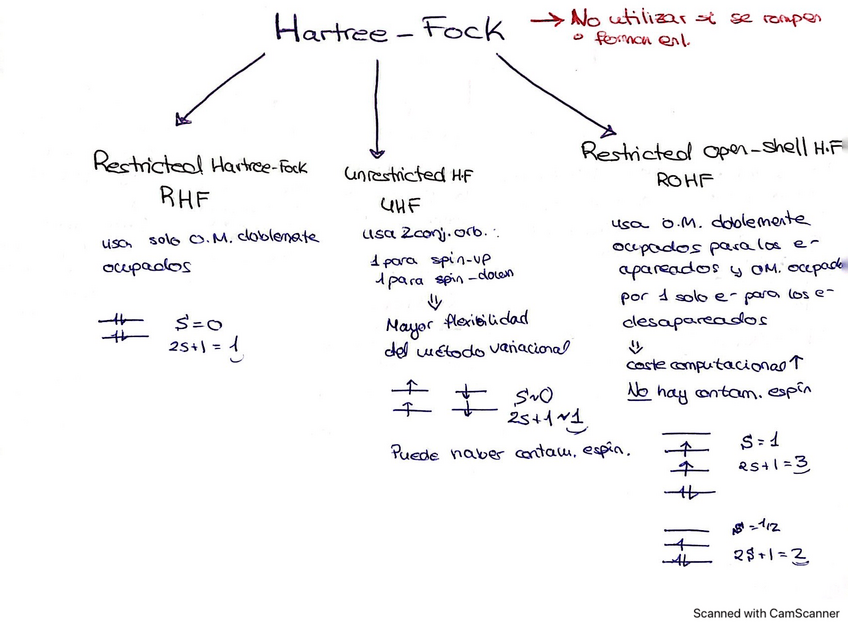 Hartree-Fock
→ No utilizar si se rompen
o forman enl.
Restricted Hartree-Fock
RHF
usa solo O.M. doblemente
ocupados
S=0
2S+1=1
Unrestricted HF
UHF
usa 2 conj. orb.:
1 para spin-up
1 para spin-down
⇓
Mayor flexibilidad
del método variacional
S~0
2S+1~1
Puede haber contam. espín.
Restricted open-shell H.F
ROHF
usa O.M. doblemente
ocupados para los e-
apareados y OM. ocupado
por 1 solo e- para los e-
desapareados
⇓
coste computacional ↑
No hay contam. espín
S=1
2S+1=3
S=1/2
2S+1=2
Scanned with CamScanner